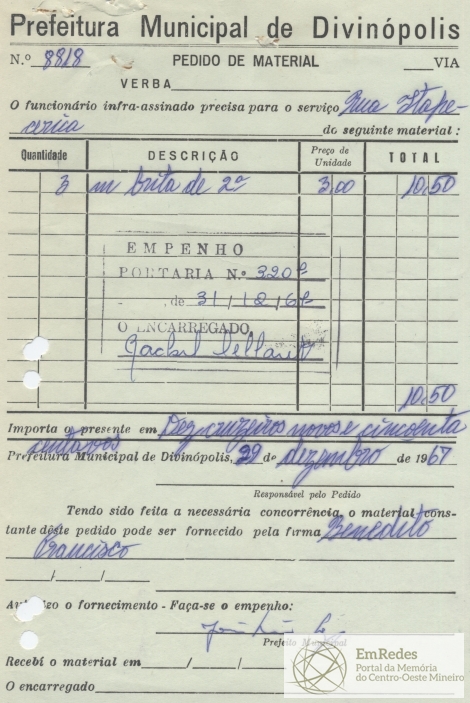 Prefeitura Municipal de Divinópolis
N.º 8818 PEDIDO DE MATERIAL VIA
VERBA
O funcionário infra-assinado precisa para o serviço Rua Itape-
cerica do seguinte material :
Quantidade DESCRIÇÃO Preço de Unidade TOTAL
3 m brita de 2ª 3,00 10,50
EMPENHO
PORTARIA N.º 320
, de 31/12/67
O ENCARREGADO,
10,50
Importa o presente em Dez cruzeiros novos e cincoenta
centavos
Prefeitura Municipal de Divinópolis, 29 de dezembro de 1967
Responsável pelo Pedido
Tendo sido feita a necessária concorrência, o material cons-
tante dêste pedido pode ser fornecido pela firma Benedito
Francisco
/ /
Autorizo o fornecimento - Faça-se o empenho:
Prefeito Municipal
Recebí o material em / /
O encarregado
EmRedes
Portal da Memória
do Centro-Oeste Mineiro